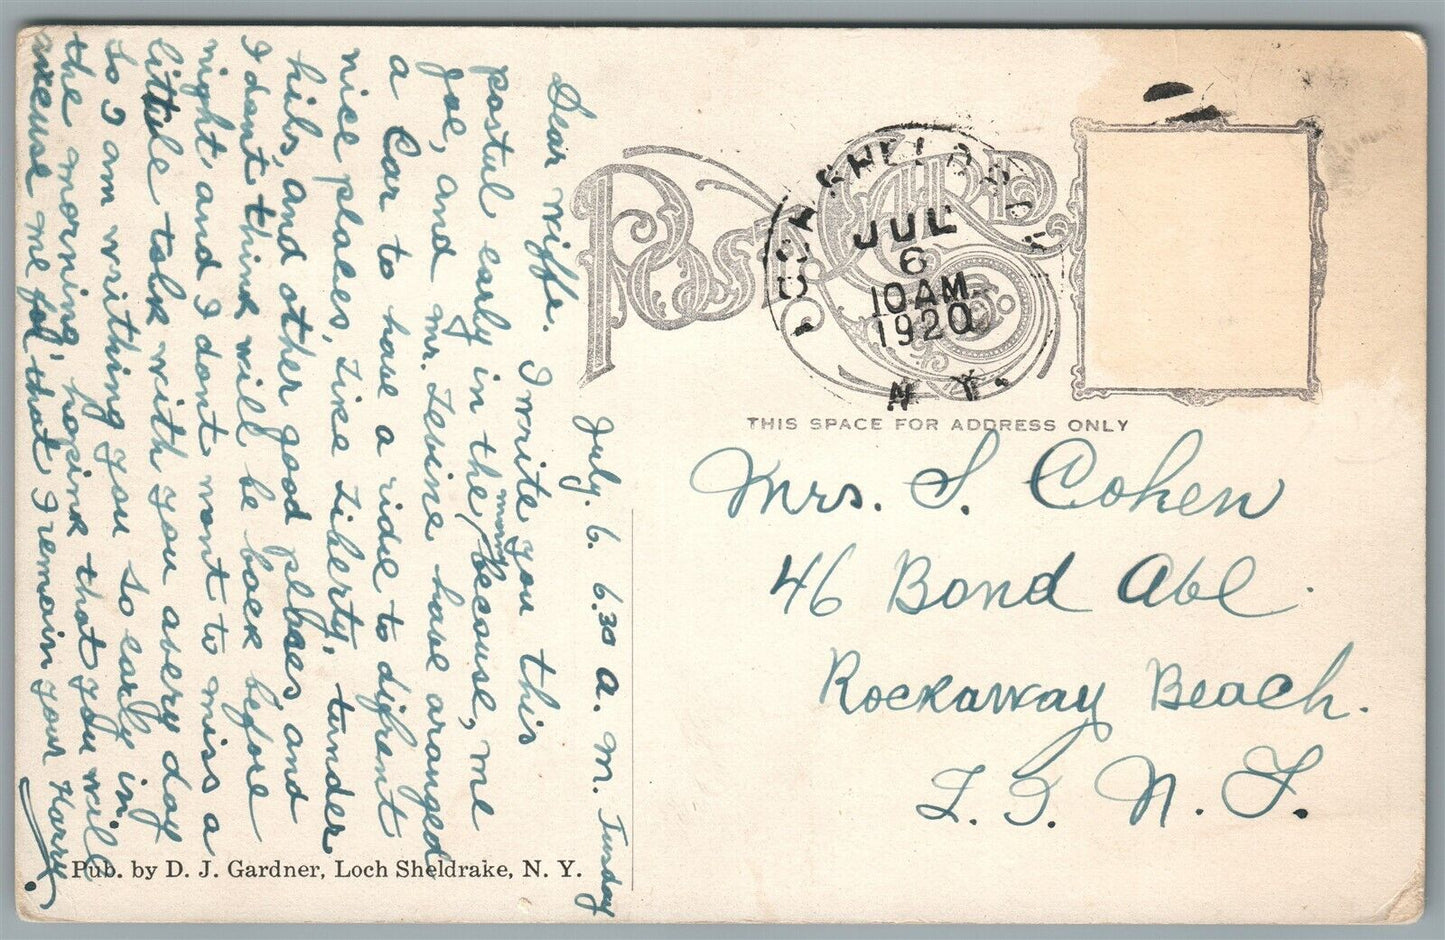 July. 6. 6.30 A. M. Tusday
Dear wiffe. I write you this
postul early in the morning because, me
Joe, and mr. Levine have aranged
a Car to have a ridie to difrent
nice places, Like Liberty, tunder
hils, and other good plases, and
I dont think will be back before
night, and I dont wont to miss a
little talk with you avery day
So I am writhing you so early in
the morning, hopink that you will
axcuse me for that I remain your Harry.
POST CARD
LOCH SHELDRAKE
JUL
6
10 AM
1920
N. Y.
THIS SPACE FOR ADDRESS ONLY
Mrs. S. Cohen
46 Bond Ave.
Rockaway Beach.
L. I. N. Y.
Pub. by D. J. Gardner, Loch Sheldrake, N. Y.